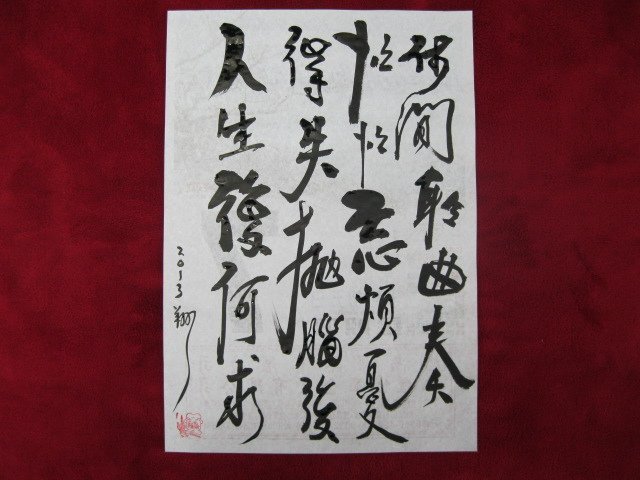 休閒聆曲奏
怡怡忘煩憂
得失拋腦後
人生復何求
2013 翔